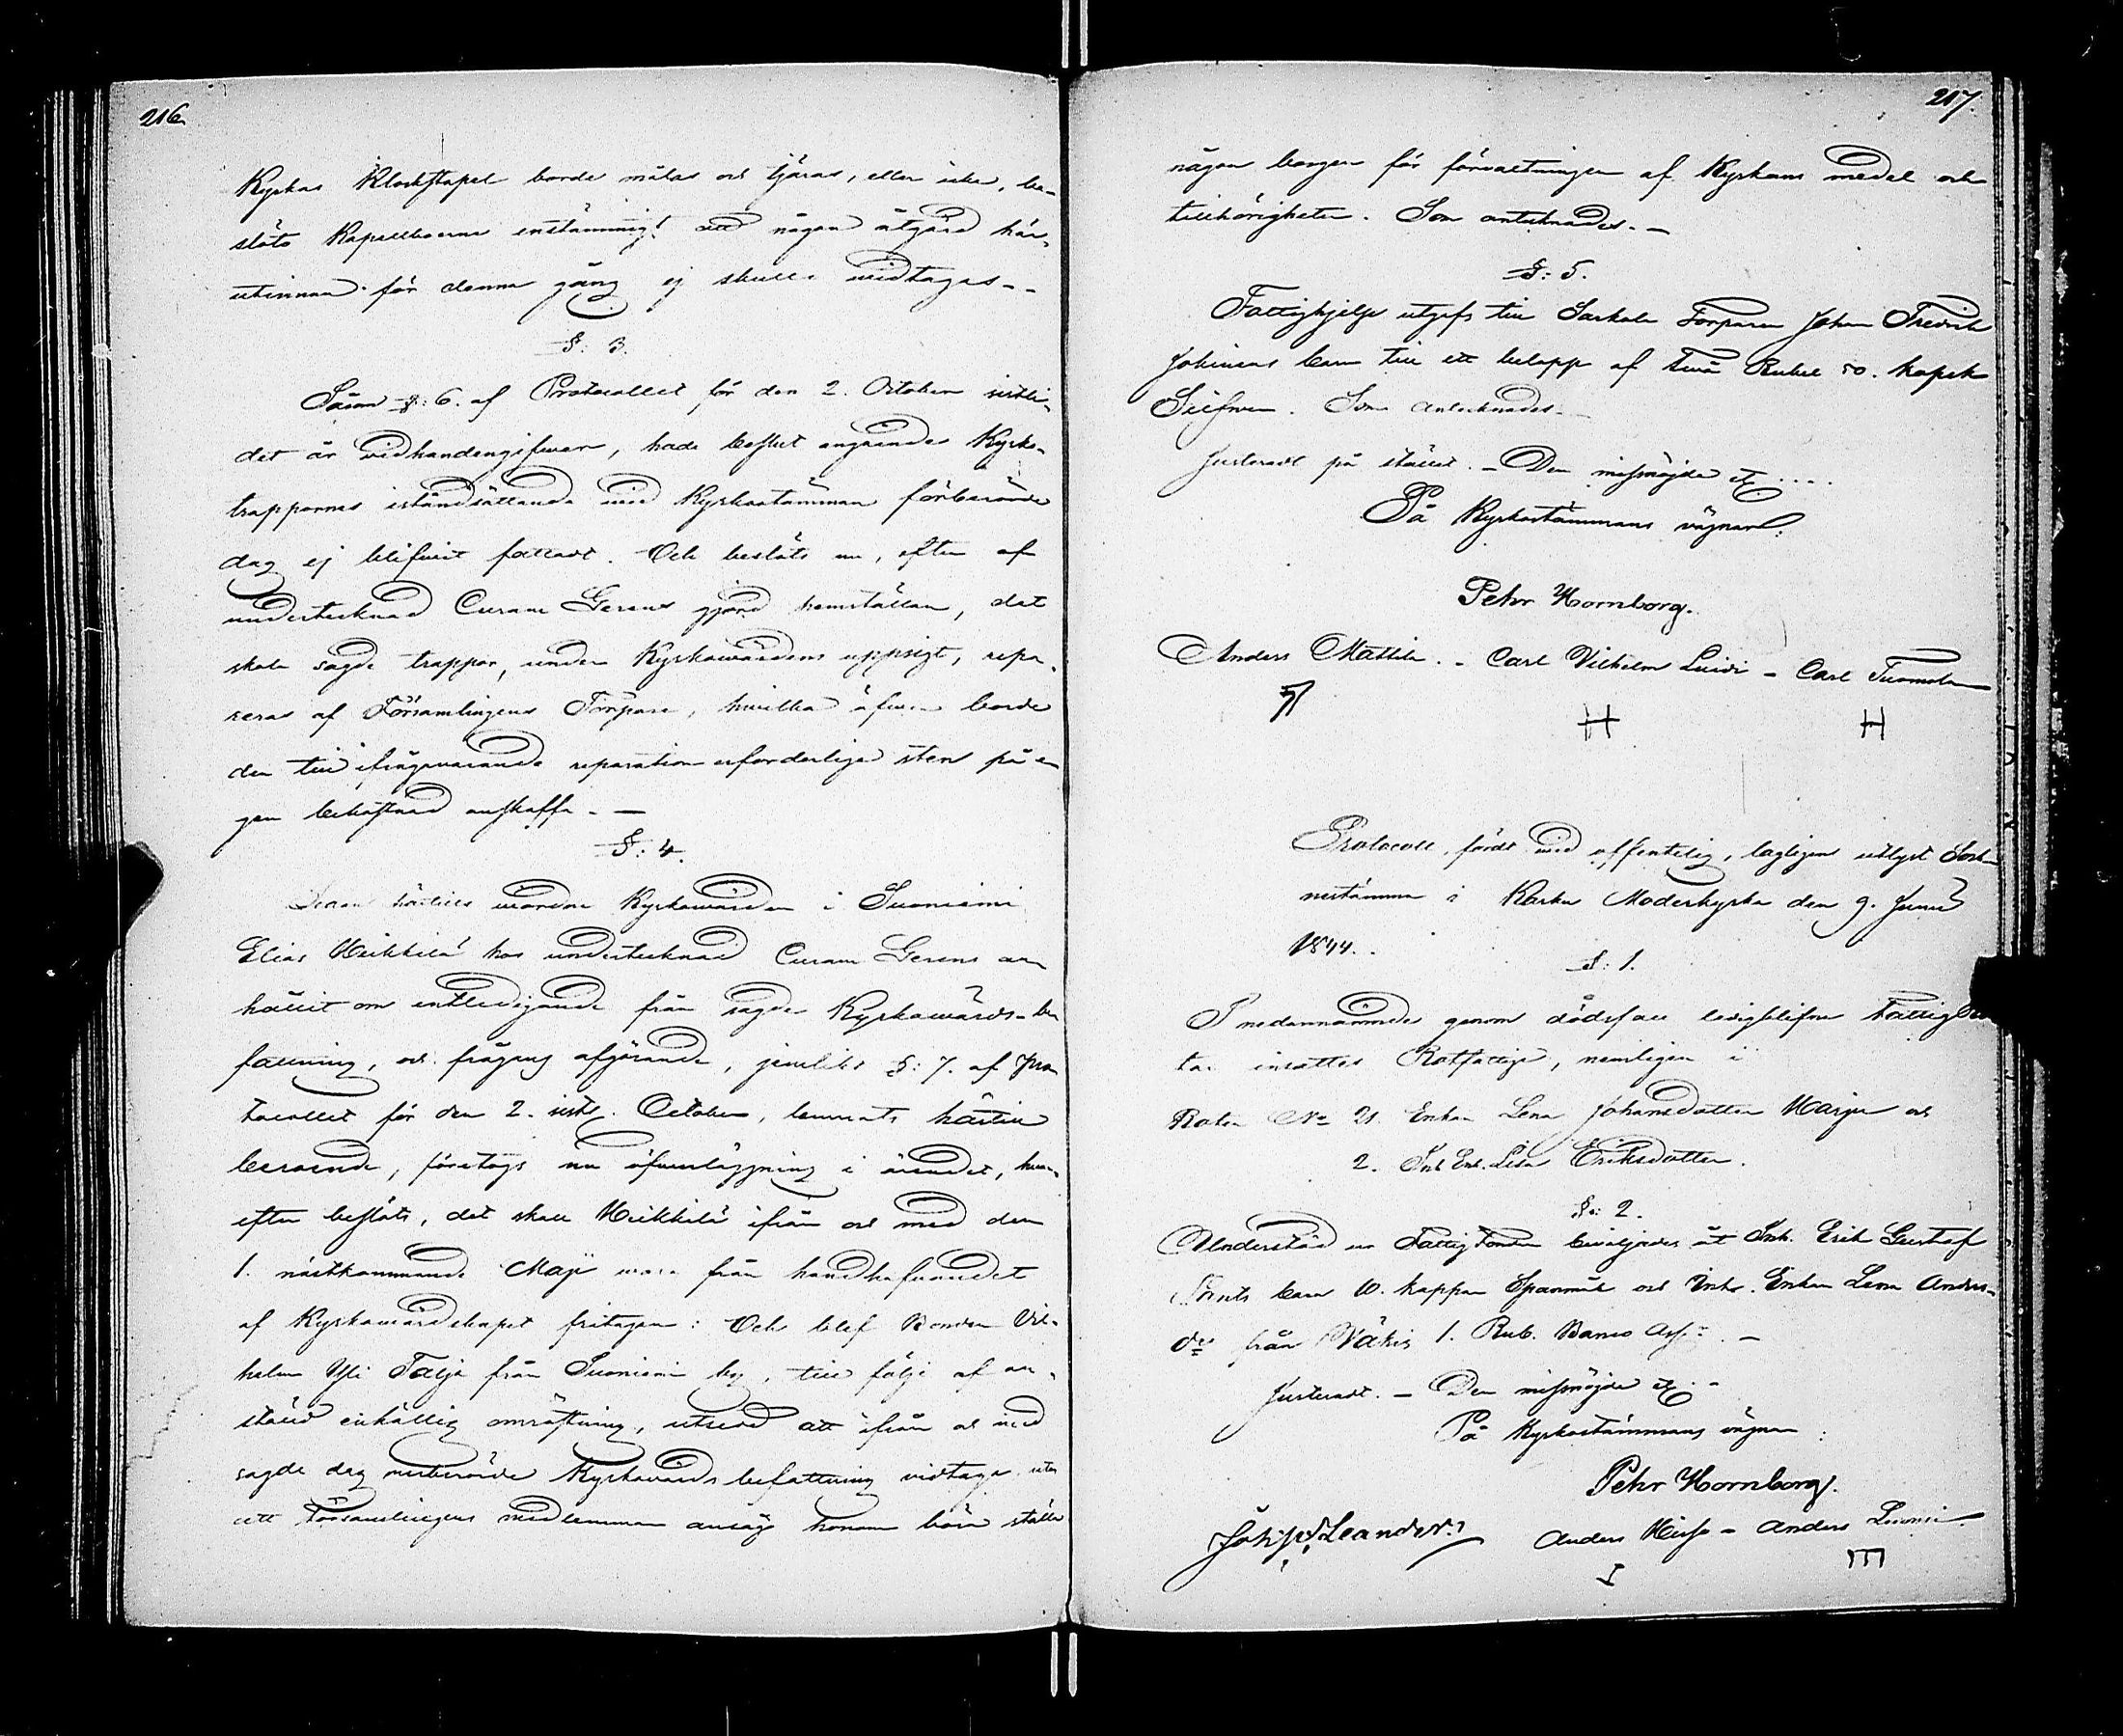 216.
Kyrkas Klockstapel borde målas och tjäras, eller icke, be-
slöto Kapellboerne enstämmigt att någon åtgärd här-
utinnan för denna gång ej skulle vidtagas. -
§: 3.
Såsom §: 6. af Protocollet för den 2. October sistli-
det är vidhandengifwer, hade beslut angående Kyrko-
trappornas iståndsättande vid Kyrkostämman förberörde
dag ej blifwit fattadt. Och beslöts nu, efter af
undertecknad Curam Gerens gjord hemställan, det
skola sagde trappor, under Kyrkowärdens uppsigt, repa-
reras af Församlingens Torpare, hwilka äfwen borde
den till ifrågawarande reparation erforderliga sten på e-
gen bekostnad anskaffa. -
§: 4.
Sedan härtills warande Kyrkowärden i Suoniemi
Elias Heikkilä hos undertecknad Curam Gerens an-
hållit om entledigande från sagde Kyrkowärds-be-
fattning, och frågans afgörande, jemlikt §: 7. af Pro-
tocollet för den 2. sistl. October, lemnats härtill
beroende, företogs nu öfwerläggning i ärendet, hwar-
efter beslöts, det skall Heikkilä ifrån och med den
1. nästkommande Maji wara från handhafwandet
af Kyrkowärdskapet fritagen: Och blef Bonden Wil-
helm Yli Talja från Suoniemi by, till följe af an-
ställd enhällig omröstning, utsedd att ifrån och med
sagde dag merberörde Kyrkowärds befattning vidtaga utan
att Församlingens medlemmar ansågo honom böra ställa
217.
någon borgen för förwaltningen af Kyrkans medel och
tillhörigheter. Som antecknades. -
§: 5.
Fattighjelp utgifs till Sarkola Torparen Johan Fredrik
Johinens barn till ett belopp af två Rubel 50. kopek
Silfwer. Som antecknades. -
Justeradt på stället. - Den missnöjde etc. ...
På Kyrkostämmans vägnar:
Pehr Hornborg.
Anders Mattila. - Carl Vilhelm Luidi - Carl Tuomola
Protocoll, fördt vid offentelig, lagligen utlyst Sock-
nestämma i Karku Moderkyrka den 9. Junii
1844.
§: 1.
I nedannämnde genom dödsfall ledigblifne Fattig
tar insattes Rotfattige, nemligen i
Roten No 21. Enkan Lena Johansdotter Marju och
2. Inh. Enk. Lisa Eriksdotter.
§: 2.
Understöd ur Fattigfonden beviljades åt Inh. Erik Gustaf
barn 10. kappar Spannmål och Inhs. Enkan Lena Anders-
dr från Wäkis 1. Rub. Banco Ass. -
Justeradt. - Den missnöjde etc. -
På Kyrkostämmans vägnar:
Pehr Hornborg.
Leander. Anders - Anders